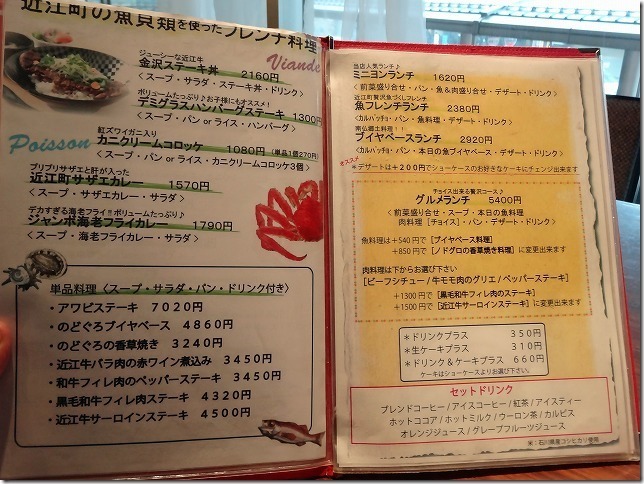 近江町の魚貝類を使ったフレンチ料理
Viande
ジューシーな近江牛
金沢ステーキ丼 2160円
＜スープ・サラダ・ステーキ丼・ドリンク＞
ボリュームたっぷり♪お子様にもオススメ！
デミグラスハンバーグステーキ 1300円
＜スープ・パン or ライス・ハンバーグ＞
Poisson
紅ズワイガニ入り
カニクリームコロッケ 1080円（単品1個270円）
＜スープ・パン or ライス・カニクリームコロッケ3個＞
プリプリサザエと肝が入った
近江町サザエカレー 1570円
＜スープ・サザエカレー・サラダ＞
デカすぎる海老フライ!!ボリュームたっぷり♪
ジャンボ海老フライカレー 1790円
＜スープ・海老フライカレー・サラダ＞
単品料理＜スープ・サラダ・パン・ドリンク付き＞
・アワビステーキ 7020円
・のどぐろブイヤベース 4860円
・のどぐろの香草焼き 3240円
・近江牛バラ肉の赤ワイン煮込み 3450円
・和牛フィレ肉のペッパーステーキ 3450円
・黒毛和牛フィレ肉ステーキ 4320円
・近江牛サーロインステーキ 4500円
当店人気ランチ♪
ミニヨンランチ 1620円
＜前菜盛り合せ・パン・魚&肉盛り合せ・デザート・ドリンク＞
近江町贅沢魚づくしフレンチ
魚フレンチランチ 2380円
＜カルパッチョ・パン・魚料理・デザート・ドリンク＞
南仏郷土料理！！
ブイヤベースランチ 2920円
＜カルパッチョ・パン・本日の魚ブイヤベース・デザート・ドリンク＞
オススメ
＊デザートは＋200円でショーケースのお好きなケーキにチェンジ出来ます
チョイス出来る贅沢コース♪
グルメランチ 5400円
＜前菜盛り合せ・スープ・本日の魚料理
肉料理［チョイス］・パン・デザート・ドリンク＞
魚料理は＋540円で［ブイヤベース料理］
＋850円で［ノドグロの香草焼き料理］に変更出来ます
肉料理は下からお選び下さい
［ビーフシチュー / 牛モモ肉のグリエ / ペッパーステーキ］
＋1300円で［黒毛和牛フィレ肉のステーキ］
＋1500円で［近江牛サーロインステーキ］に変更出来ます
＊ドリンクプラス 350円
＊生ケーキプラス 310円
＊ドリンク＆ケーキプラス 660円
ケーキはショーケースよりお選び下さい。
セットドリンク
ブレンドコーヒー / アイスコーヒー / 紅茶 / アイスティー
ホットココア / ホットミルク / ウーロン茶 / カルピス
オレンジジュース / グレープフルーツジュース
米：石川県産コシヒカリ使用